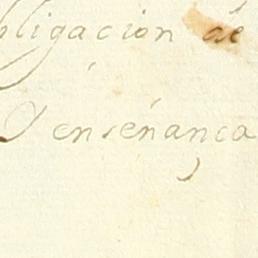 bligacion de
enseñança